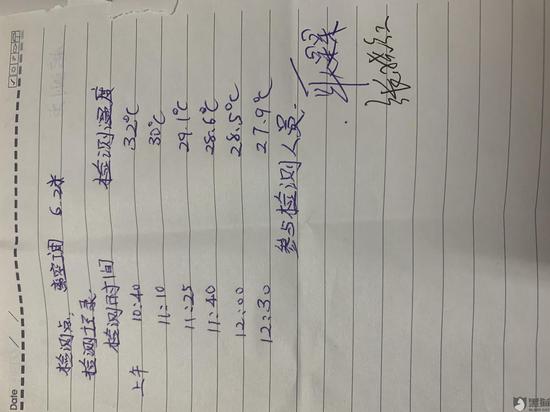 Date / /
检测点 离空调 6.2米
检测记录
检测时间 检测温度
上午 10:40 32℃
11:10 30℃
11:25 29.1℃
11:40 28.6℃
12:00 28.5℃
12:30 27.9℃
参与检测人员:
黑猫